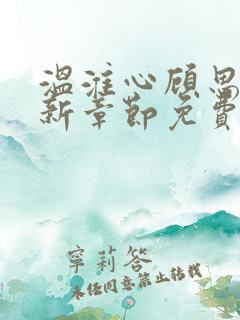 温淮心顾景
新章节免费
宁莉答
未经同意禁止转载